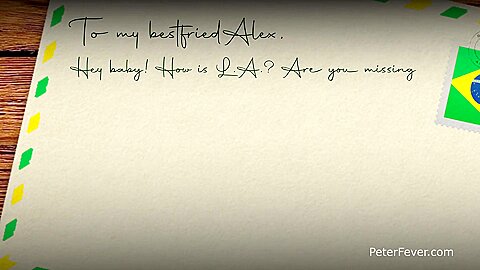 To my bestfried Alex.
Hey baby! How is L.A.? Are you missing
PeterFever.com